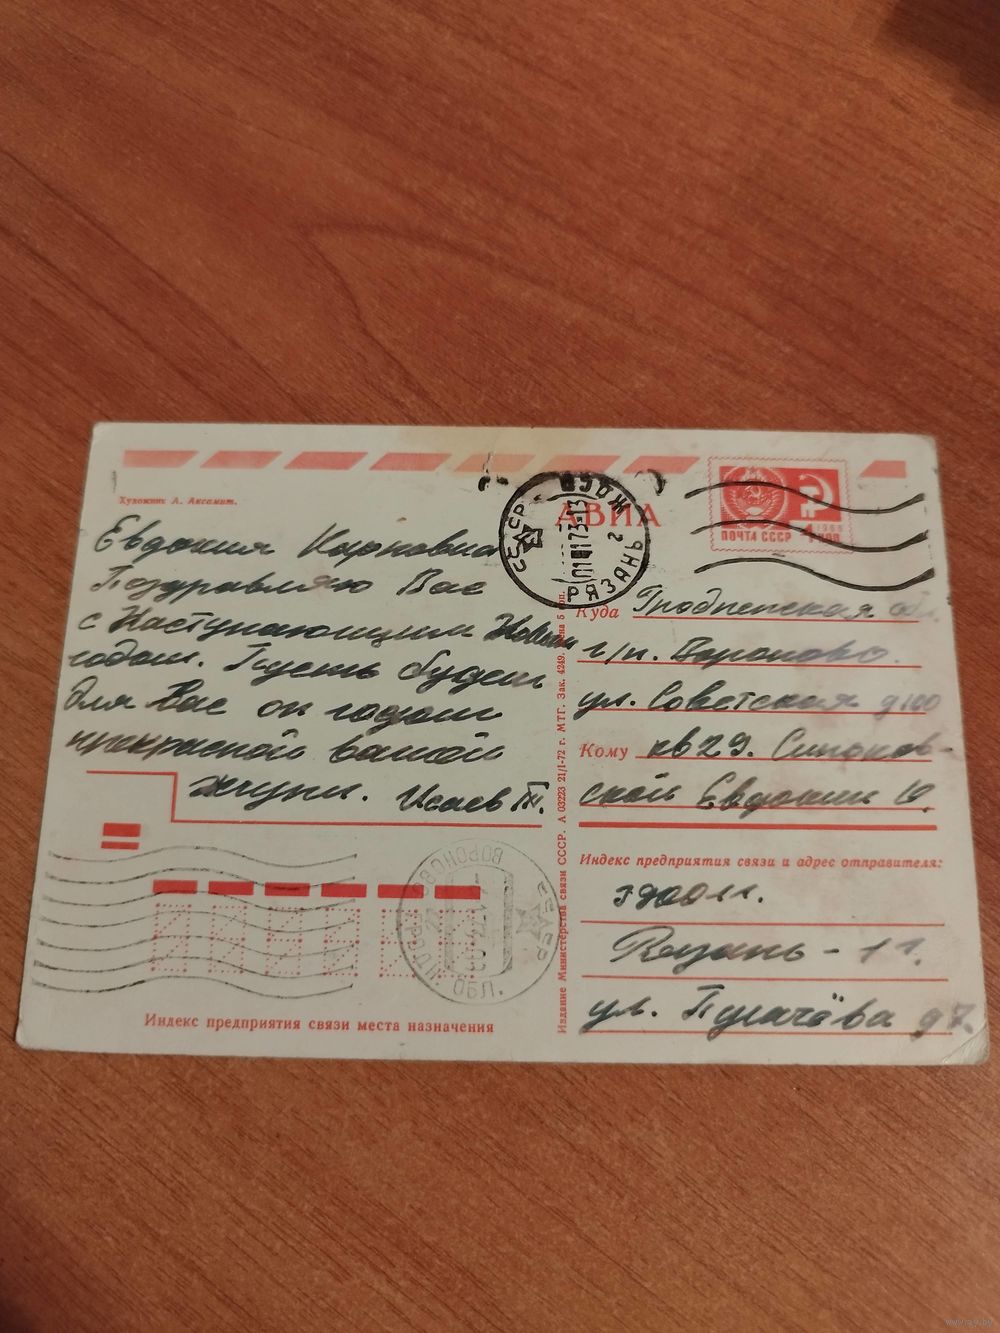 Художник А. Аксамит.
Евдокия Карповна
Поздравляю Вас
с Наступающим Новым
годом. Пусть будет
для Вас он годом
прекрасной вашей
жизни. Исаев
Индекс предприятия связи места назначения
Издание Министерства связи СССР. А 03223 21/I-72 г. МТГ. Зак. 4249. Цена 5 коп.
АВИА
СССР
РЯЗАНЬ
ПОЧТА СССР 4
1966
Куда Гродненская обл.
г/п. Вороново
ул. Советская
Кому кв 29.
ской Евдокии
Индекс предприятия связи и адрес отправителя:
Рязань - 11.
ул. Пугачёва д 7.
ВОРОНОВО
СССР
www.ay.by